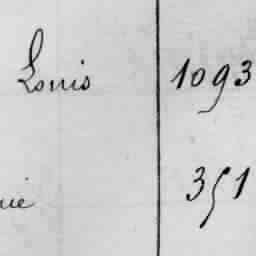 Louis 1093
rie 351